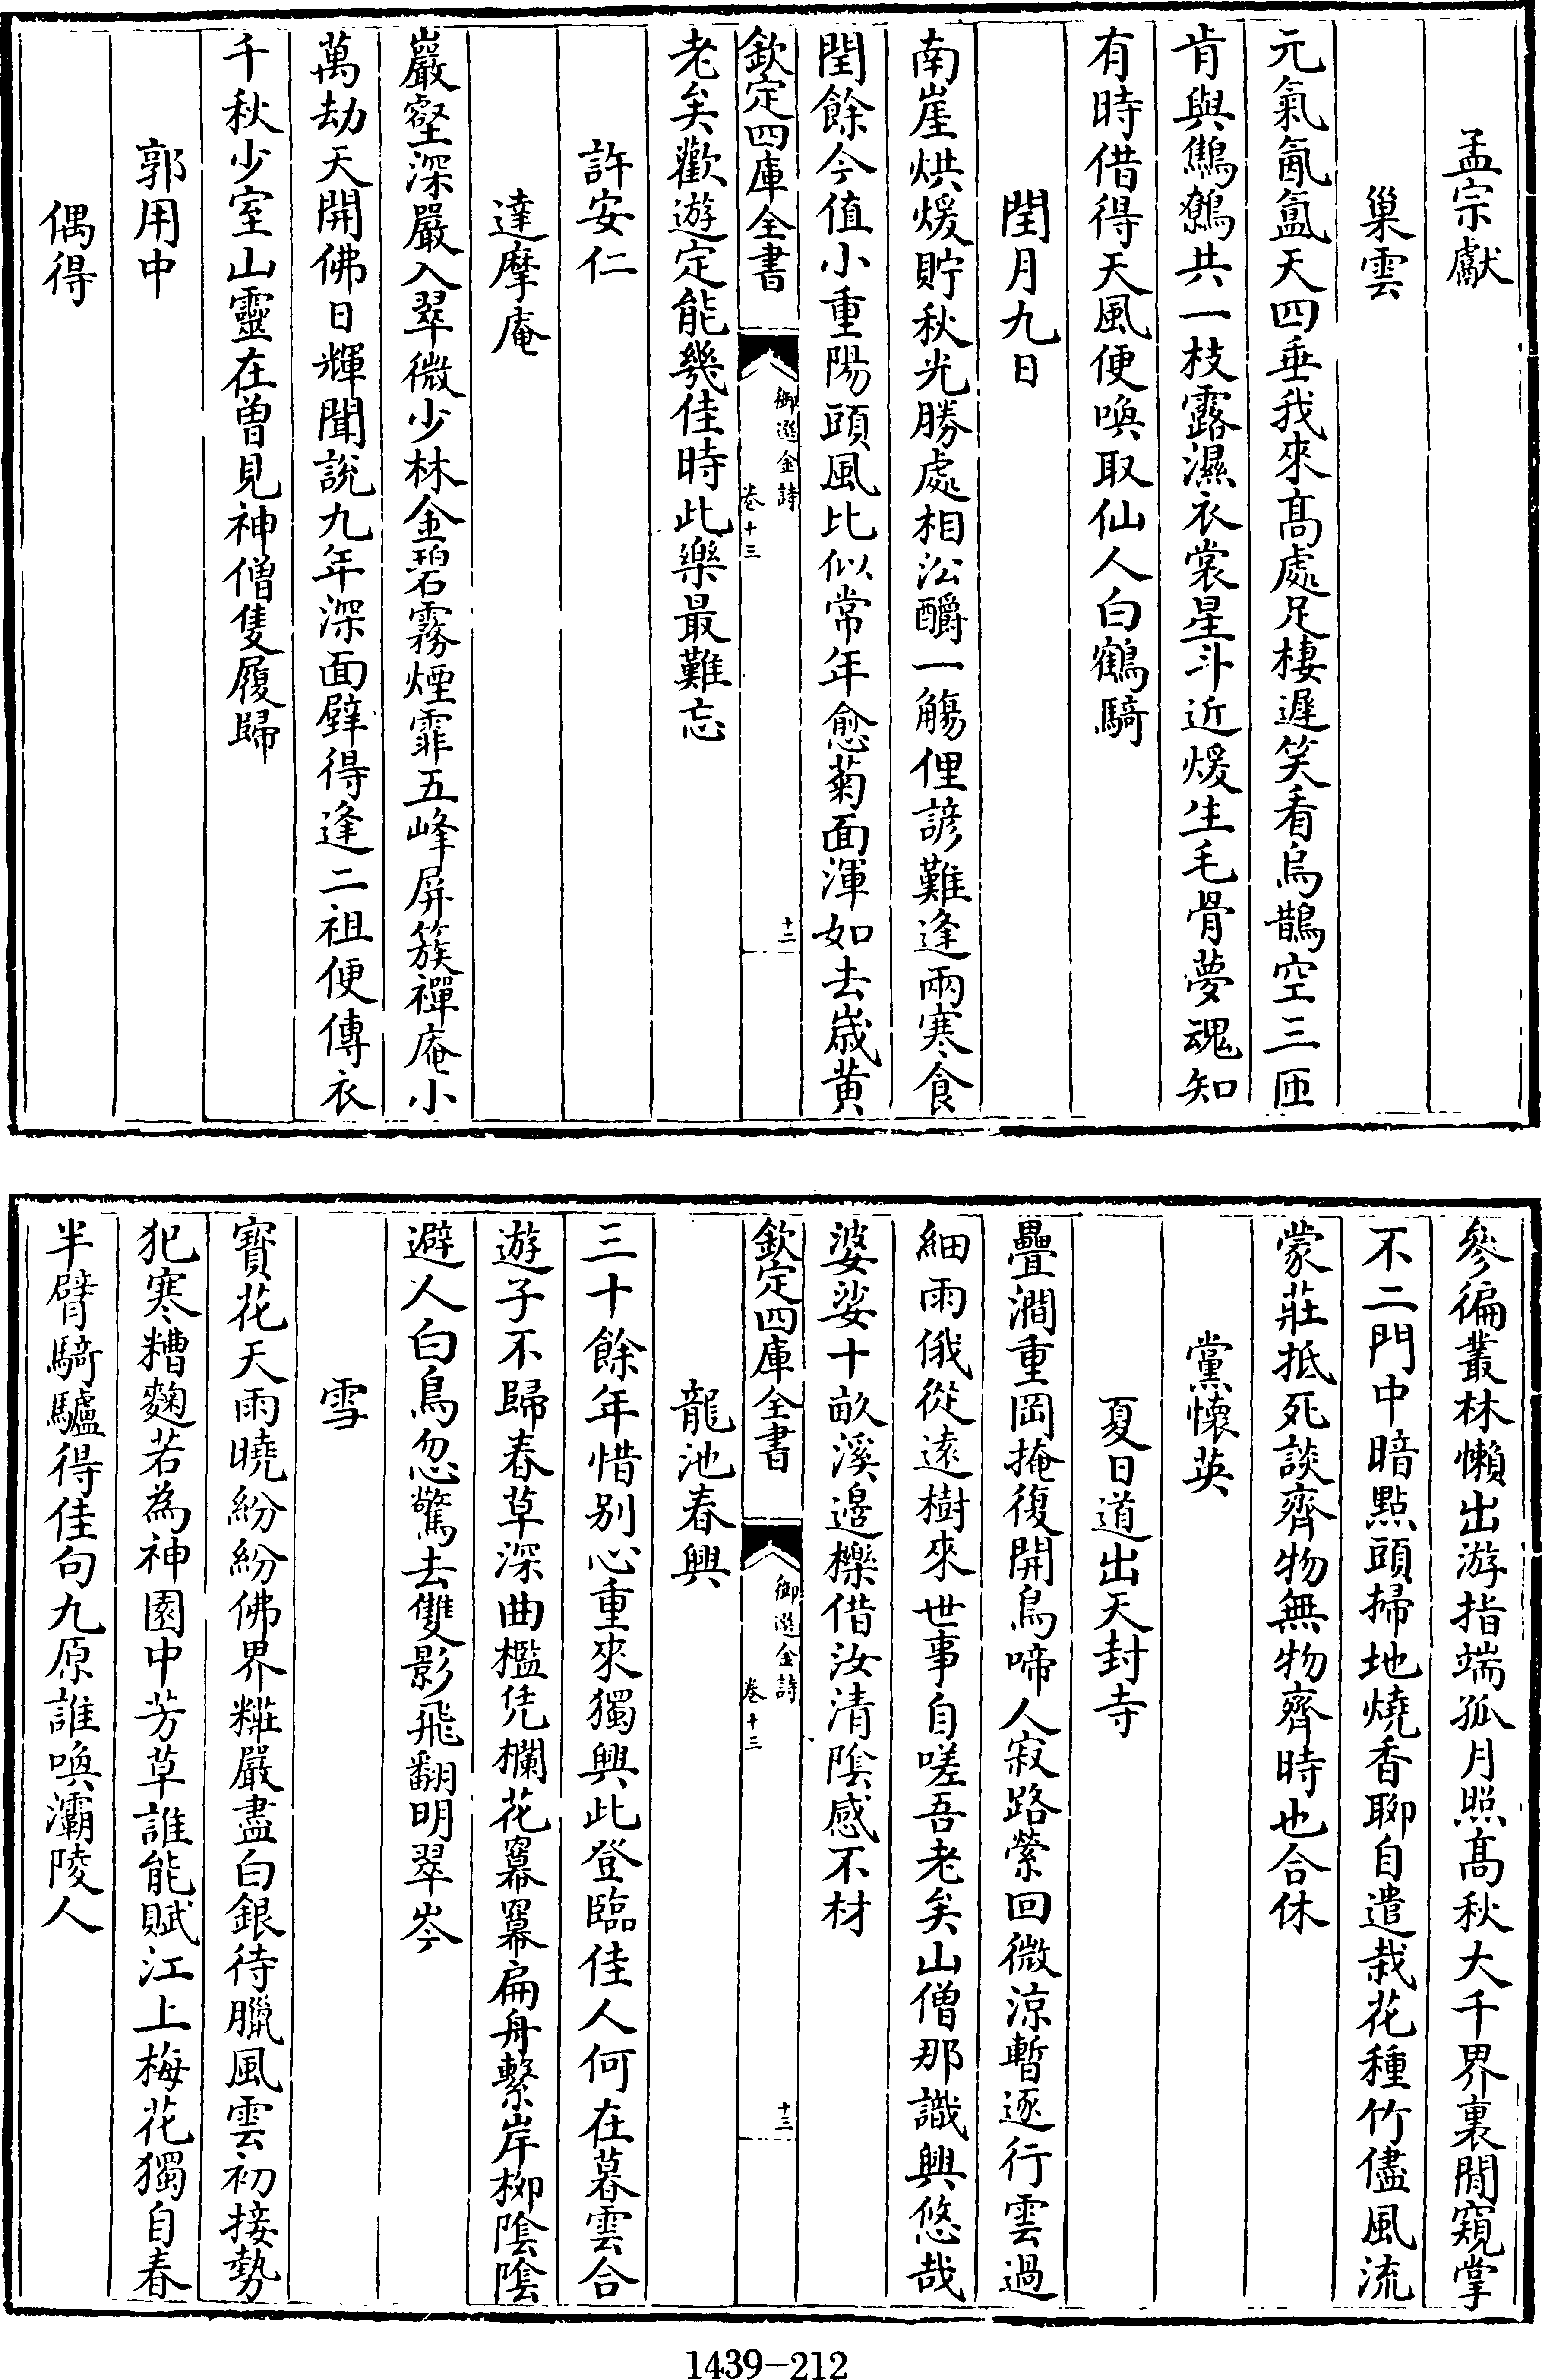 孟宗獻
巢雲
元氣氤氳天四垂我來髙處足棲遲笑看烏鵲空三匝
肯與鷦鷯共一枝露濕衣裳星斗近煖生毛骨夢魂知
有時借得天風便喚取仙人白鶴騎
閏月九日
南崖烘煖貯秋光勝處相㳂釂一觴俚諺難逢兩寒食
閏餘今值小重陽頭風比似常年愈菊面渾如去歳黄
欽定四庫全書
御選金詩
卷十三
十二
老矣歡遊定能幾佳時此樂最難忘
許安仁
達摩庵
巖壑深嚴入翠微少林金碧霧煙霏五峰屏簇禪庵小
萬劫天開佛日輝聞說九年深面壁得逢二祖便傳衣
千秋少室山靈在曽見神僧隻履歸
郭用中
偶得
參徧叢林懶出游指端孤月照髙秋大千界裏閒窺掌
不二門中暗點頭掃地燒香聊自遣栽花種竹儘風流
蒙莊抵死談齊物無物齊時也合休
黨懷英
夏日道出天封寺
疊澗重岡掩復開鳥啼人寂路縈回微涼暫逐行雲過
細雨俄從逺樹來世事自嗟吾老矣山僧那識興悠哉
婆娑十畝溪邉櫟借汝清隂感不材
欽定四庫全書
御選金詩
卷十三
十三
龍池春興
三十餘年惜别心重來獨興此登臨佳人何在暮雲合
遊子不歸春草深曲檻凭欄花羃羃扁舟繫岸栁隂隂
避人白鳥忽驚去雙影飛翻明翠岑
雪
寳花天雨曉紛紛佛界糚嚴盡白銀待臘風雲初接勢
犯寒糟麴若為神園中芳草誰能賦江上梅花獨自春
半臂騎驢得佳句九原誰喚灞陵人
1439-212